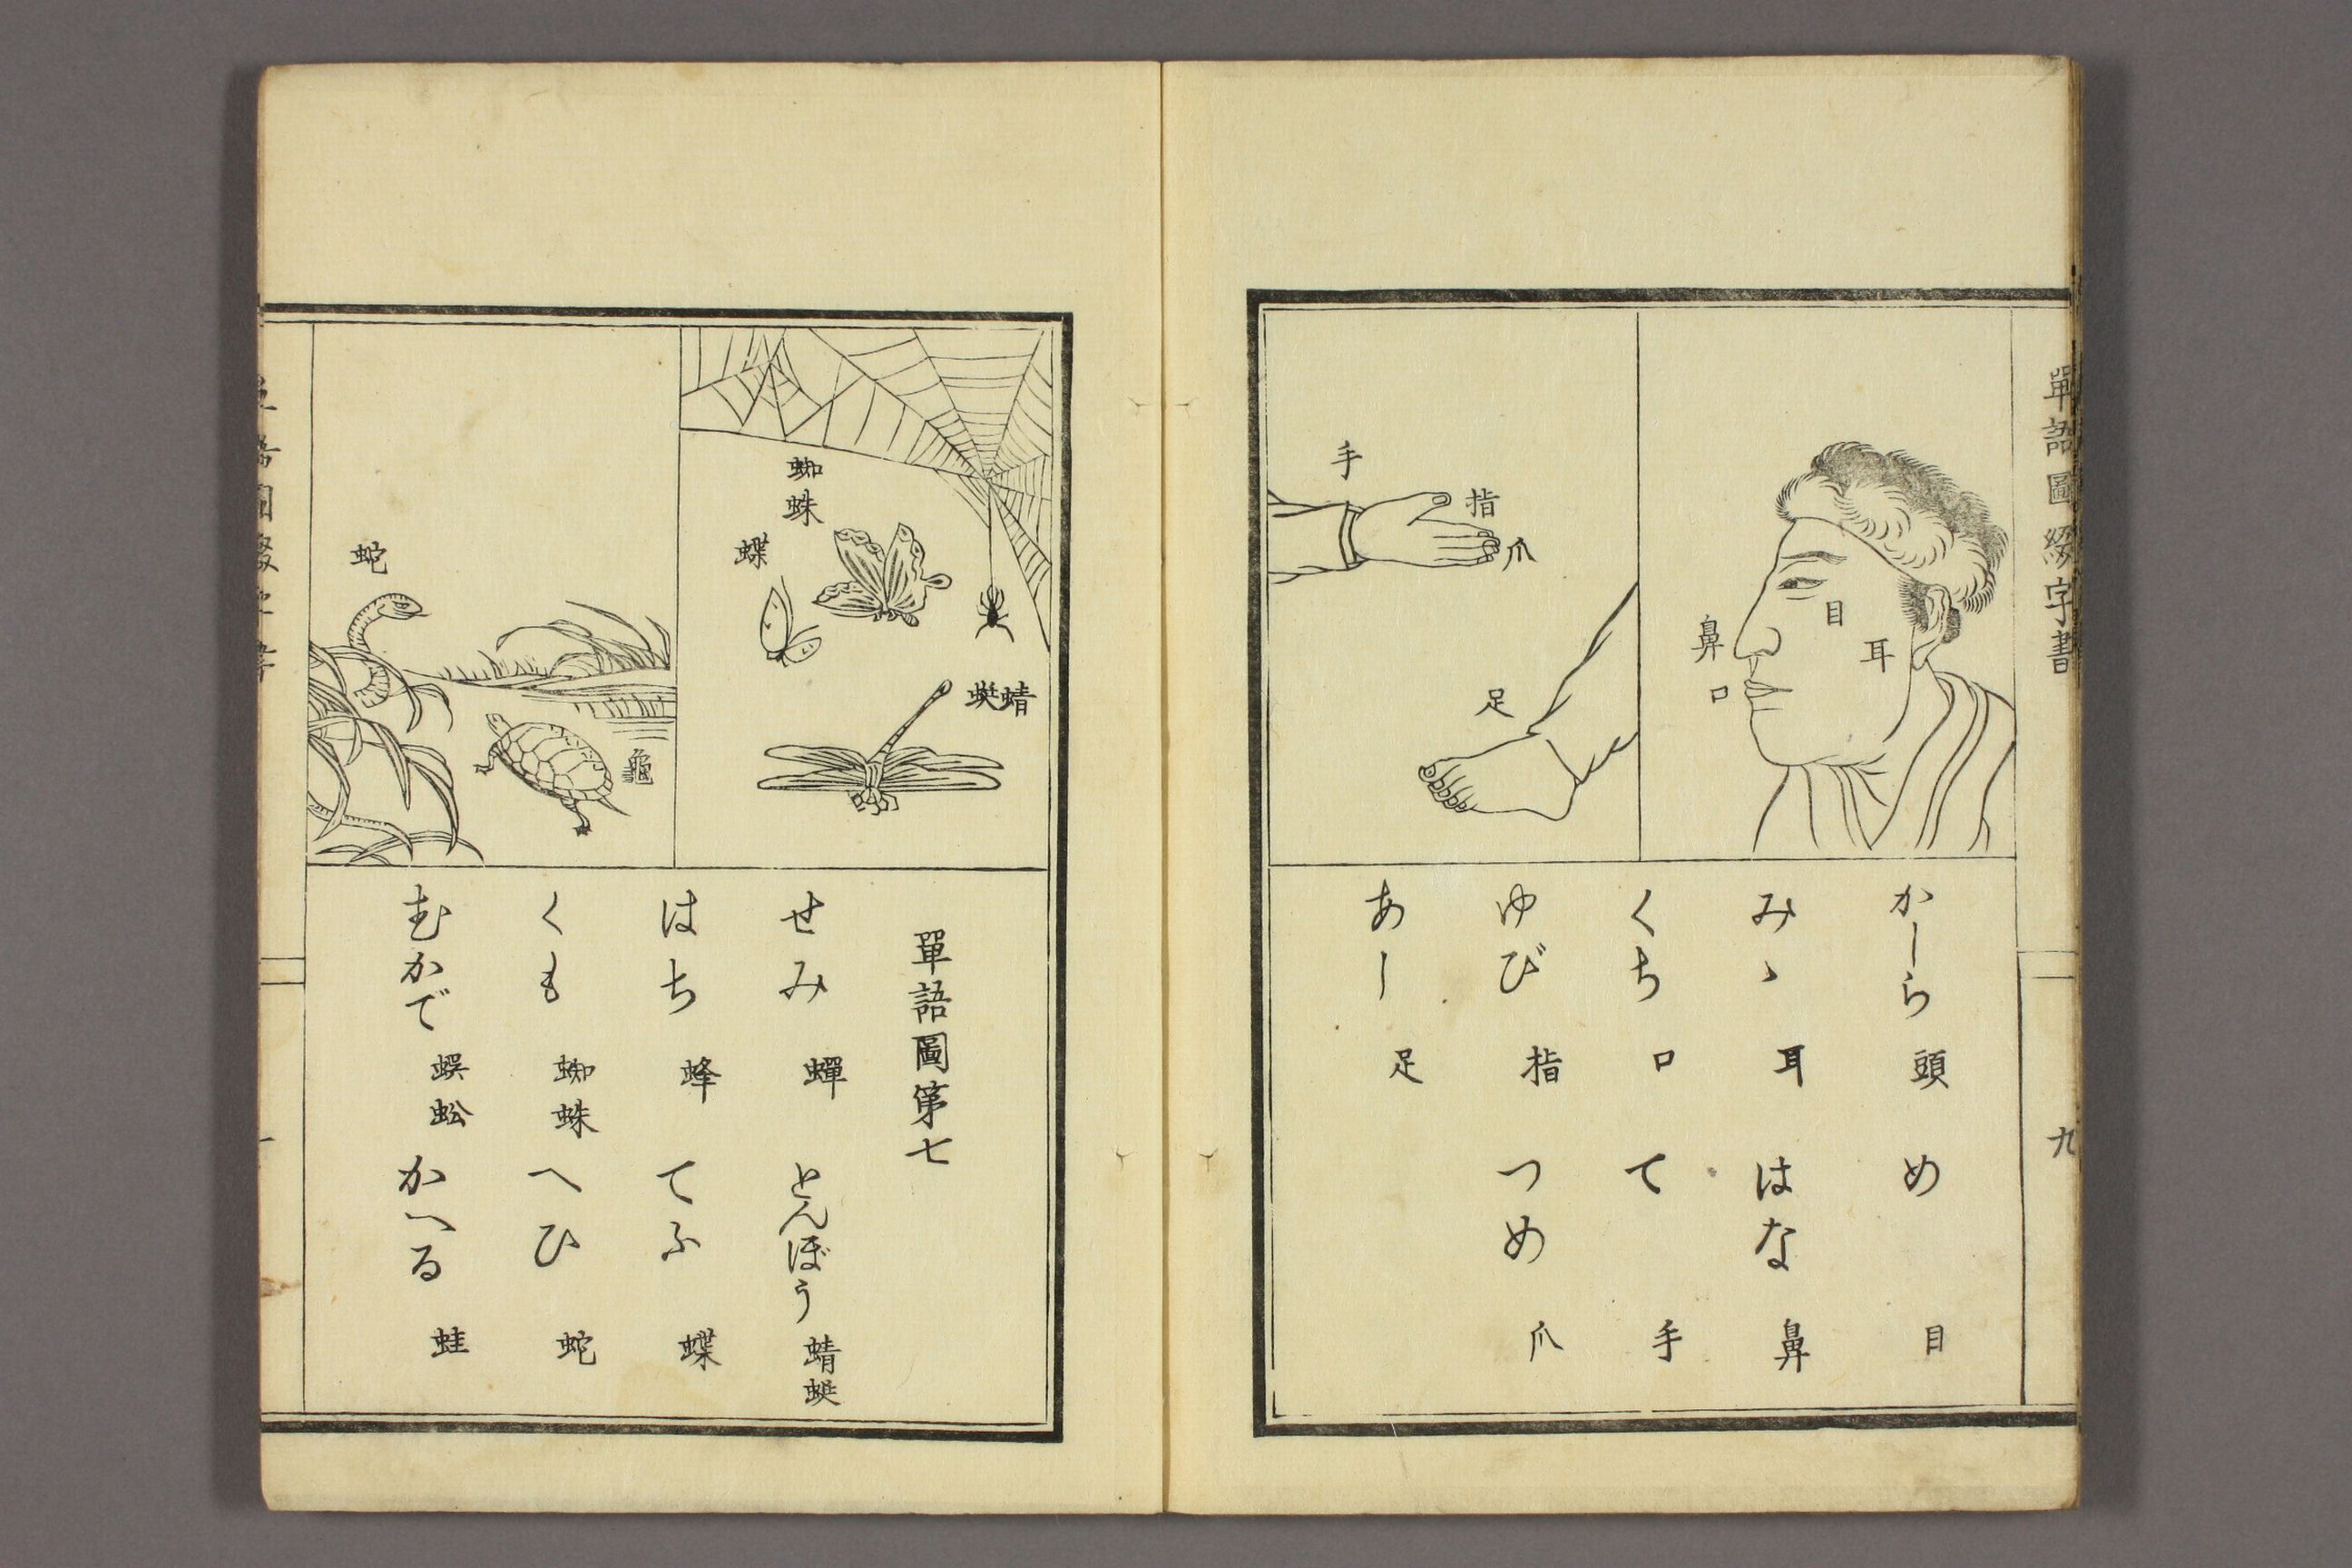 單語圖綴字書
九
目
耳
鼻
口
手
指
爪
足
かしら 頭 め 目
みゝ 耳 はな 鼻
くち 口 て 手
ゆび 指 つめ 爪
あし 足
蜘蛛
蝶
蜻蜓
蛇
龜
單語圖第七
せみ 蟬 とんぼう 蜻蜓
はち 蜂 てふ 蝶
くも 蜘蛛 へひ 蛇
むかで 蜈蚣 かへる 蛙